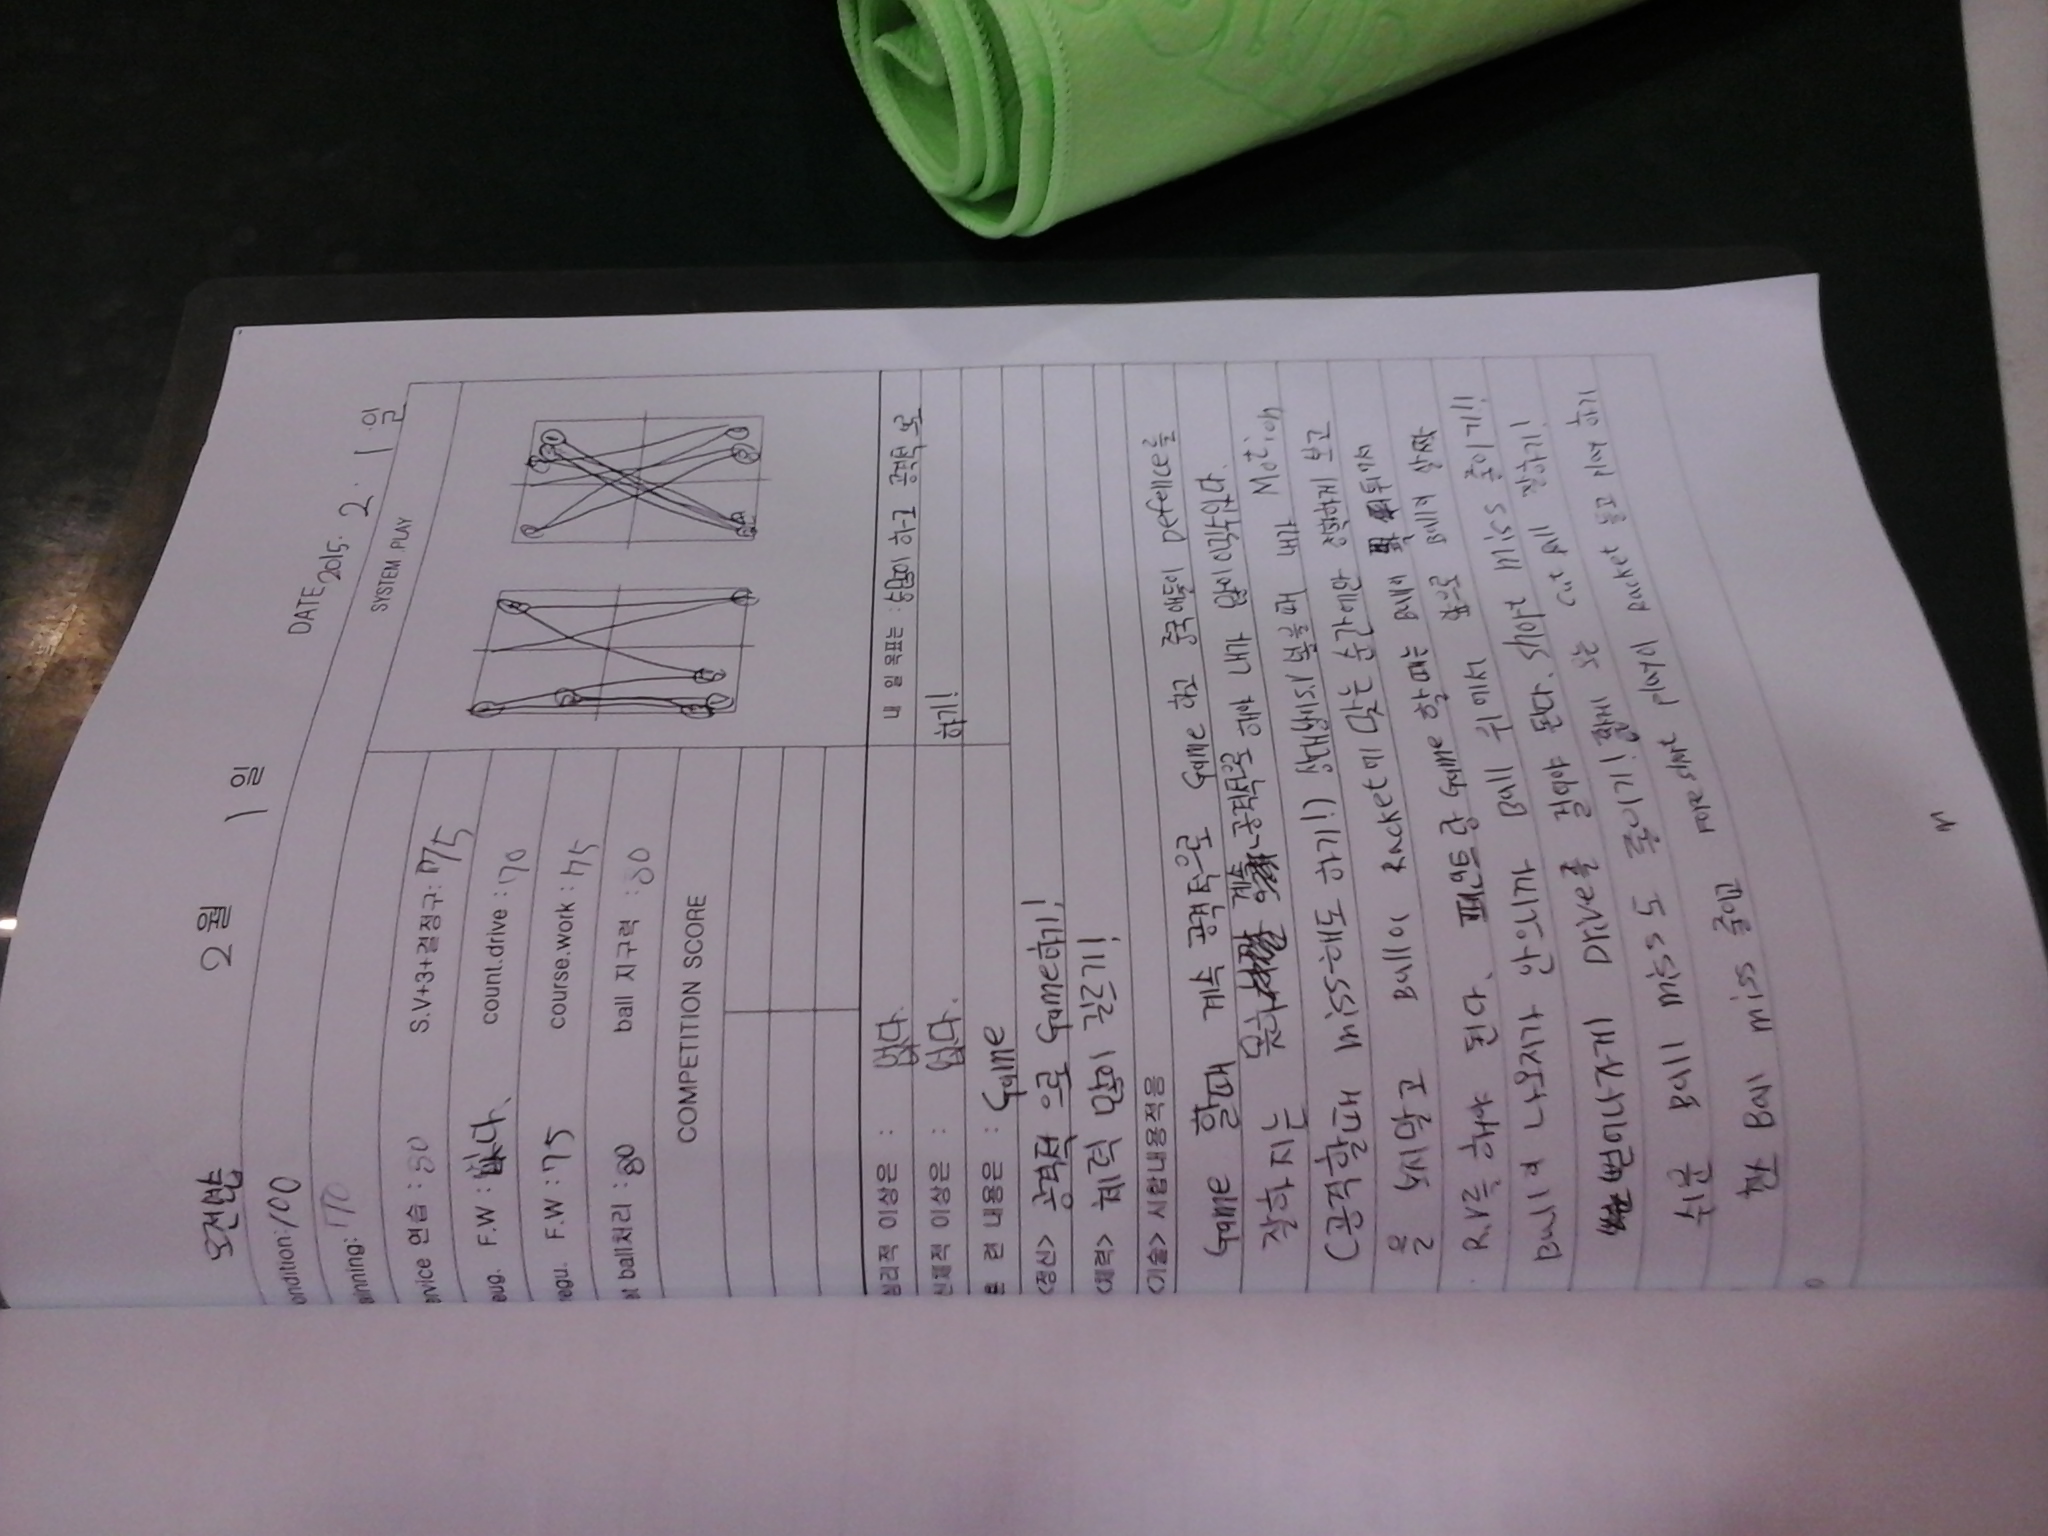 2월 1일
DATE 2015. 2. 1일
ondition: 100
SYSTEM .PLAY
ainning: 170
ervice 연습 : 80 S.V+3+결정구: 75
eug. F.W : count.drive : 70
regu. F.W : 75 course.work : 75
ball처리 : 80 ball 지구력 : 80
COMPETITION SCORE
심리적 이상은 : 없다. 내 일 목표는 : 하고 공격적 으로
신체적 이상은 : 없다. 하기!
훈 련 내용은 : Game
<정신> 공격적 으로 Game하기!
<체력> 체력 많이 길르기!
<기술> 시합내용적음
Game 할때 계속 공격적으로 Game 하고 중국애들이 Deffence를
잘하지는 계속 공격적으로 해야 내가 많이이길수있다.
(공격할때 miss해도 하기!) 상대방이S.V 넣을때 내가 Motion
을 보지말고 Ball이 Racket에 맞는 순간에만 정확하게 보고
R.V를 해야 된다. Game 할때는 Ball에 뒤에서
Ball이 나오지가 안으니까 Ball 위에서 앞으로 Ball의 살짝
Drive를 걸어야 된다. short miss 줄이기!!
쉬운 Ball miss 도 줄이기! 짧게 오는 cut Ball 잘하기!
Ball miss 줄이고 more short play이 Racket 들고 play 하기